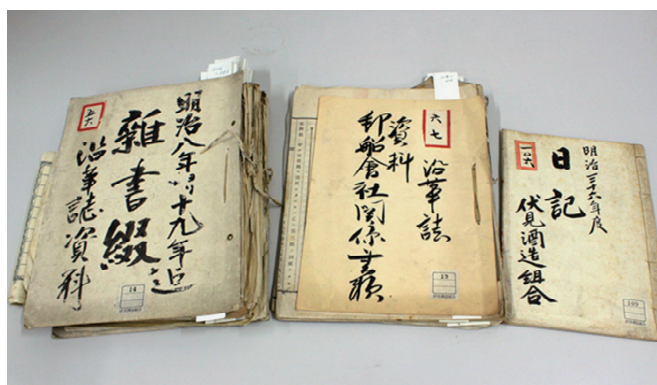 明治八年ヨリ十九年迄
五六
雜書綴
沿革誌資料
14
六七
沿革誌
資料
郵船會社関係書類
19
明治三十六年度
一〇六
日記
伏見酒造組合
109